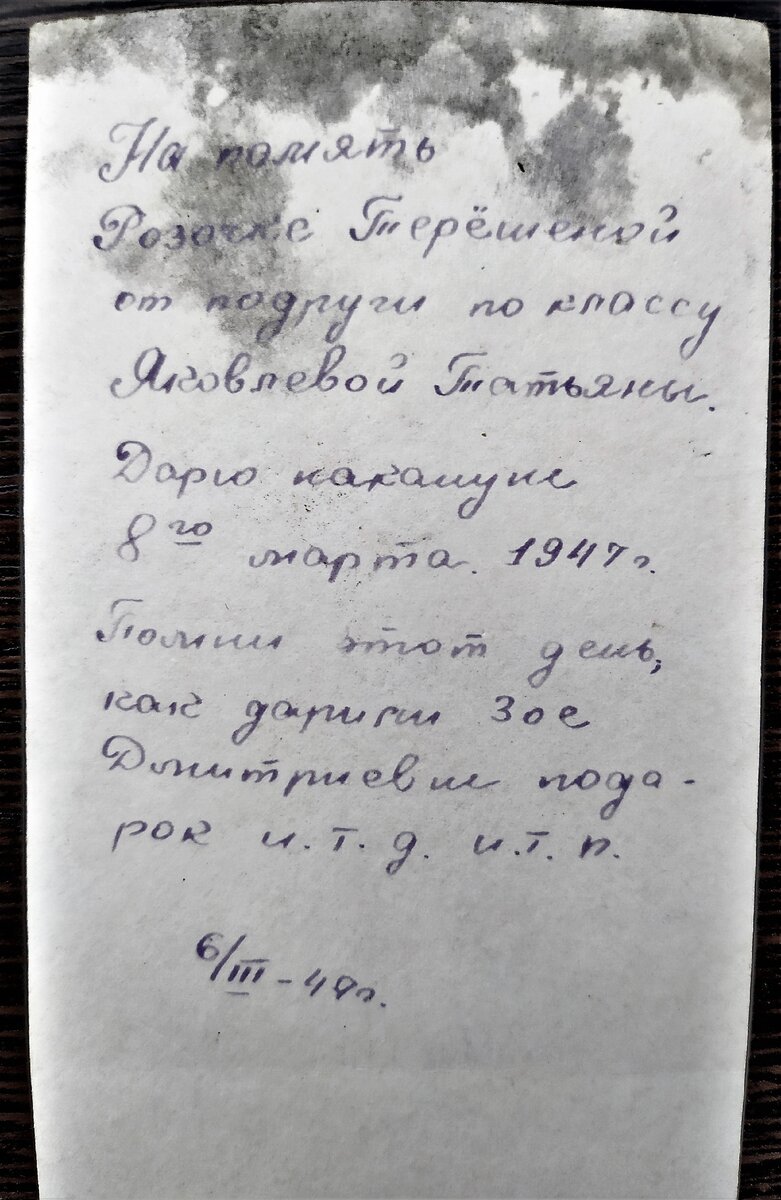 На память
Розочке Терёшеной
от подруги по классу
Яковлевой Татьяны.
Дарю накануне
8го марта. 1947 г.
Помни этот день,
как дарили Зое
Дмитриевне пода-
рок и.т.д. и.т.п.
6/III - 48 г.